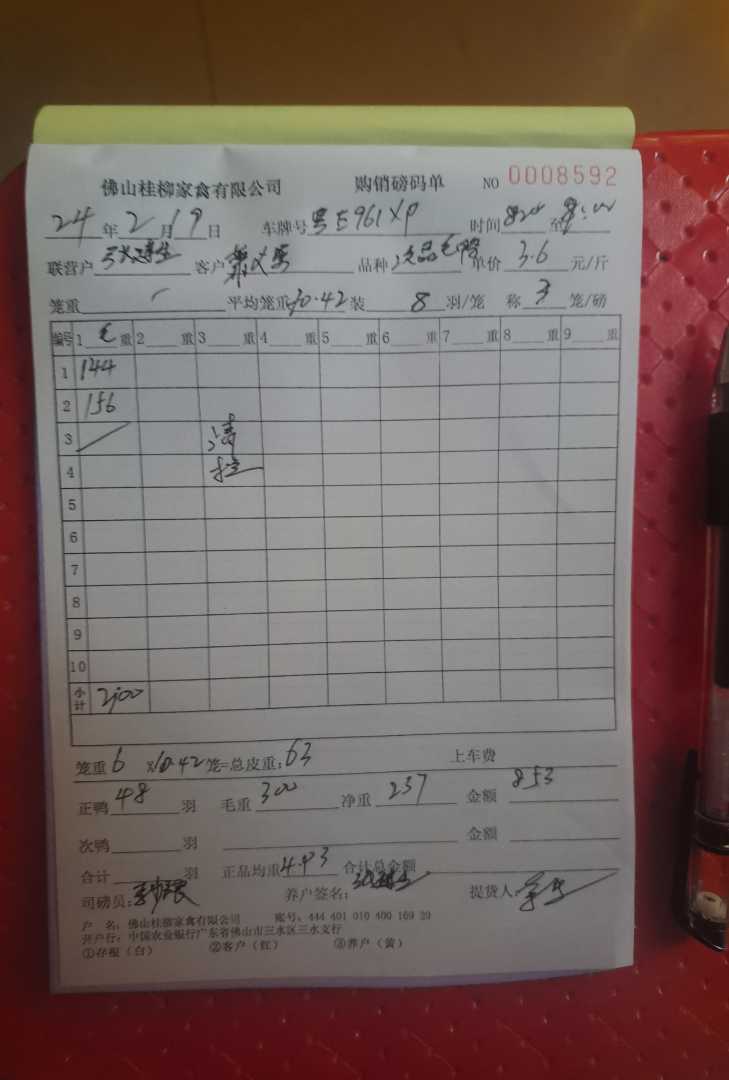 佛山桂柳家禽有限公司 购销磅码单 NO 0008592
24年2月19日 车牌号粤E961XP 时间 至
联营户 客户 品种次品毛鸭 单价3.6元/斤
笼重 平均笼重10.42装8羽/笼 称3笼/磅
编号 1 重 2 重 3 重 4 重 5 重 6 重 7 重 8 重 9 重
1 144
2 156
3 清
4 栏
5
6
7
8
9
10
小计 300
笼重6 X10.42笼=总皮重:63 上车费
正鸭48羽 毛重300 净重237 金额853
次鸭 羽 金额
合计 羽 正品均重4.93 合计总金额
司磅员: 养户签名: 提货人:
户 名: 佛山桂柳家禽有限公司 账号: 444 401 010 400 169 39
开户行: 中国农业银行广东省佛山市三水区三水支行
①存根(白) ②客户(红) ③养户(黄)